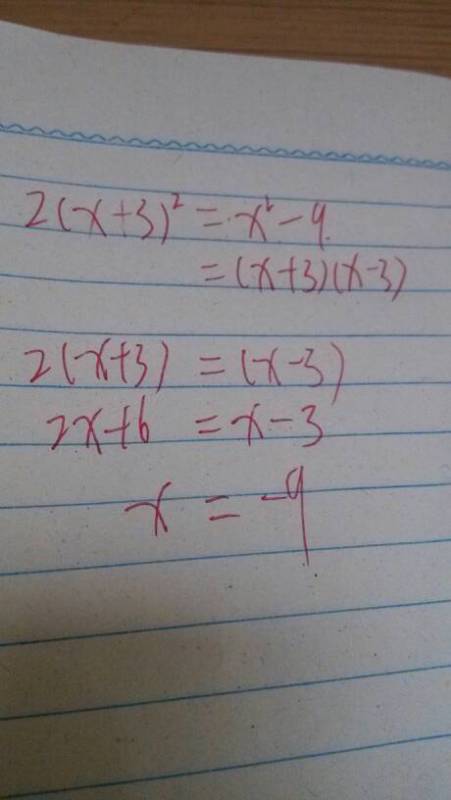 2(x+3)² = x²-9
= (x+3)(x-3)
2(x+3) = (x-3)
2x+6 = x-3
x = -9